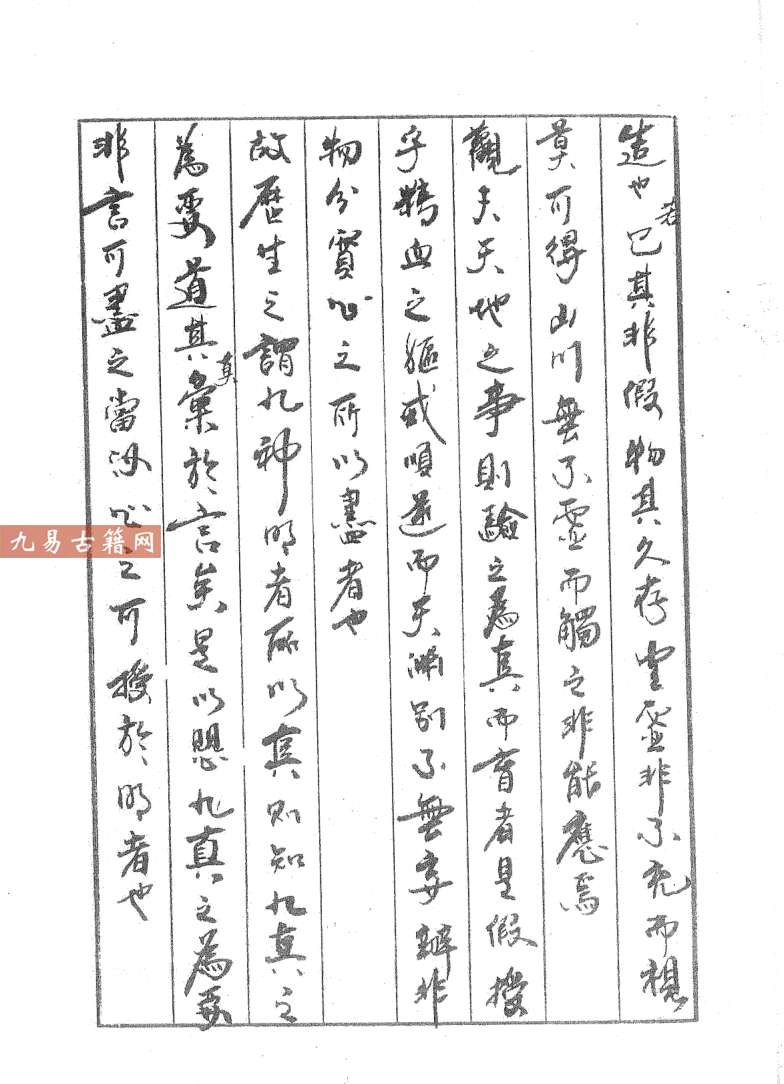 造也者已其非假物其久存虛靈非不充而視
莫可得山川無不靈而觸之非能應焉
觀夫天地之事則驗之為真而盲者是假授
乎精血之軀或順逆而天淵別不無妄辦非
物分實心之所以盡者也
故歷生之謂九神明者所以真則知九真之
為要道其真彙於言矣是以思九真之為要
非言可盡之當以心之可授於明者也
九易古籍网